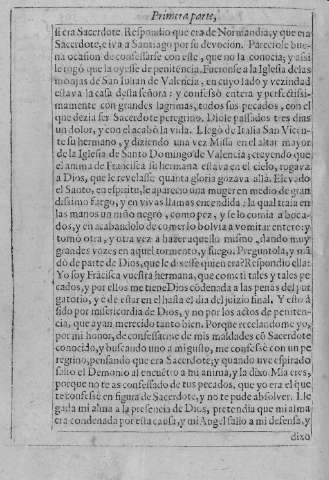 Primera parte,
si era Sacerdote. Respondio que era de Normandia, y que era
Sacerdote, e iva a Santiago por su devocion. Pareciole bue-
na ocasion de confessarse con este, que no la conocia; y assi
le rogò que la oyesse de penitencia. Fueronse a la Iglesia de las
monjas de San Iulian de Valencia, en cuyo lado y vezindad
estava la casa desta señora; y confessò entera y perfectissi-
mamente con grandes lagrimas, todos sus pecados, con el
que dezia ser Sacerdote peregrino. Diole passados tres dias
un dolor, y con èl acabò la vida. Llegò de Italia San Vicen-
te su hermano, y diziendo una vez Missa en el altar mayor
de la Iglesia de Santo Domingo de Valencia; creyendo que
el anima de Francisca su hermana estava en el cielo, rogava
a Dios, que le revelasse quanta gloria gozava allà. Elevado
el Santo, en espiritu, le aparecio una muger en medio de gran
dissimo fuego, y en vivas llamas encendida: la qual traia en
las manos un niño negro, como pez, y se lo comia a boca-
dos, y en acabandolo de comer lo bolvia a vomitar entero: y
tomò otra, y otra vez a hazer aquello mismo, dando muy
grandes vozes en aquel tormento, y fuego. Preguntola, y mã
dò de parte de Dios, que le dixesse quien era? Respondio ella:
Yo soy Frãcisca vuestra hermana, que cometi tales y tales pe
cados, y por ellos me tiene Dios cõdenada a las penas del pur
gatorio, y è de estar en el hasta el dia del juizio final. Y esto à
sido por misericordia de Dios, y no por los actos de peniten-
cia, que ayan merecido tanto bien. Porque rezelandome yo,
por mi honor, de confessarme de mis maldades cõ Sacerdote
conocido, y buscando uno a mi gusto, me confessè con un pe
regrino, pensando que era Sacerdote; y quando uve espirado
salio el Demonio al encuẽtro a mi anima, y la dixo. Mia eres,
porque no te as confessado de tus pecados, que yo era el que
te confessè en figura de Sacerdote, y no te pude absolver. Lle
gada mi alma a la presencia de Dios, pretendia que mi alma
era condenada por esta causa, y mi Angel salio a mi defensa, y
dixo